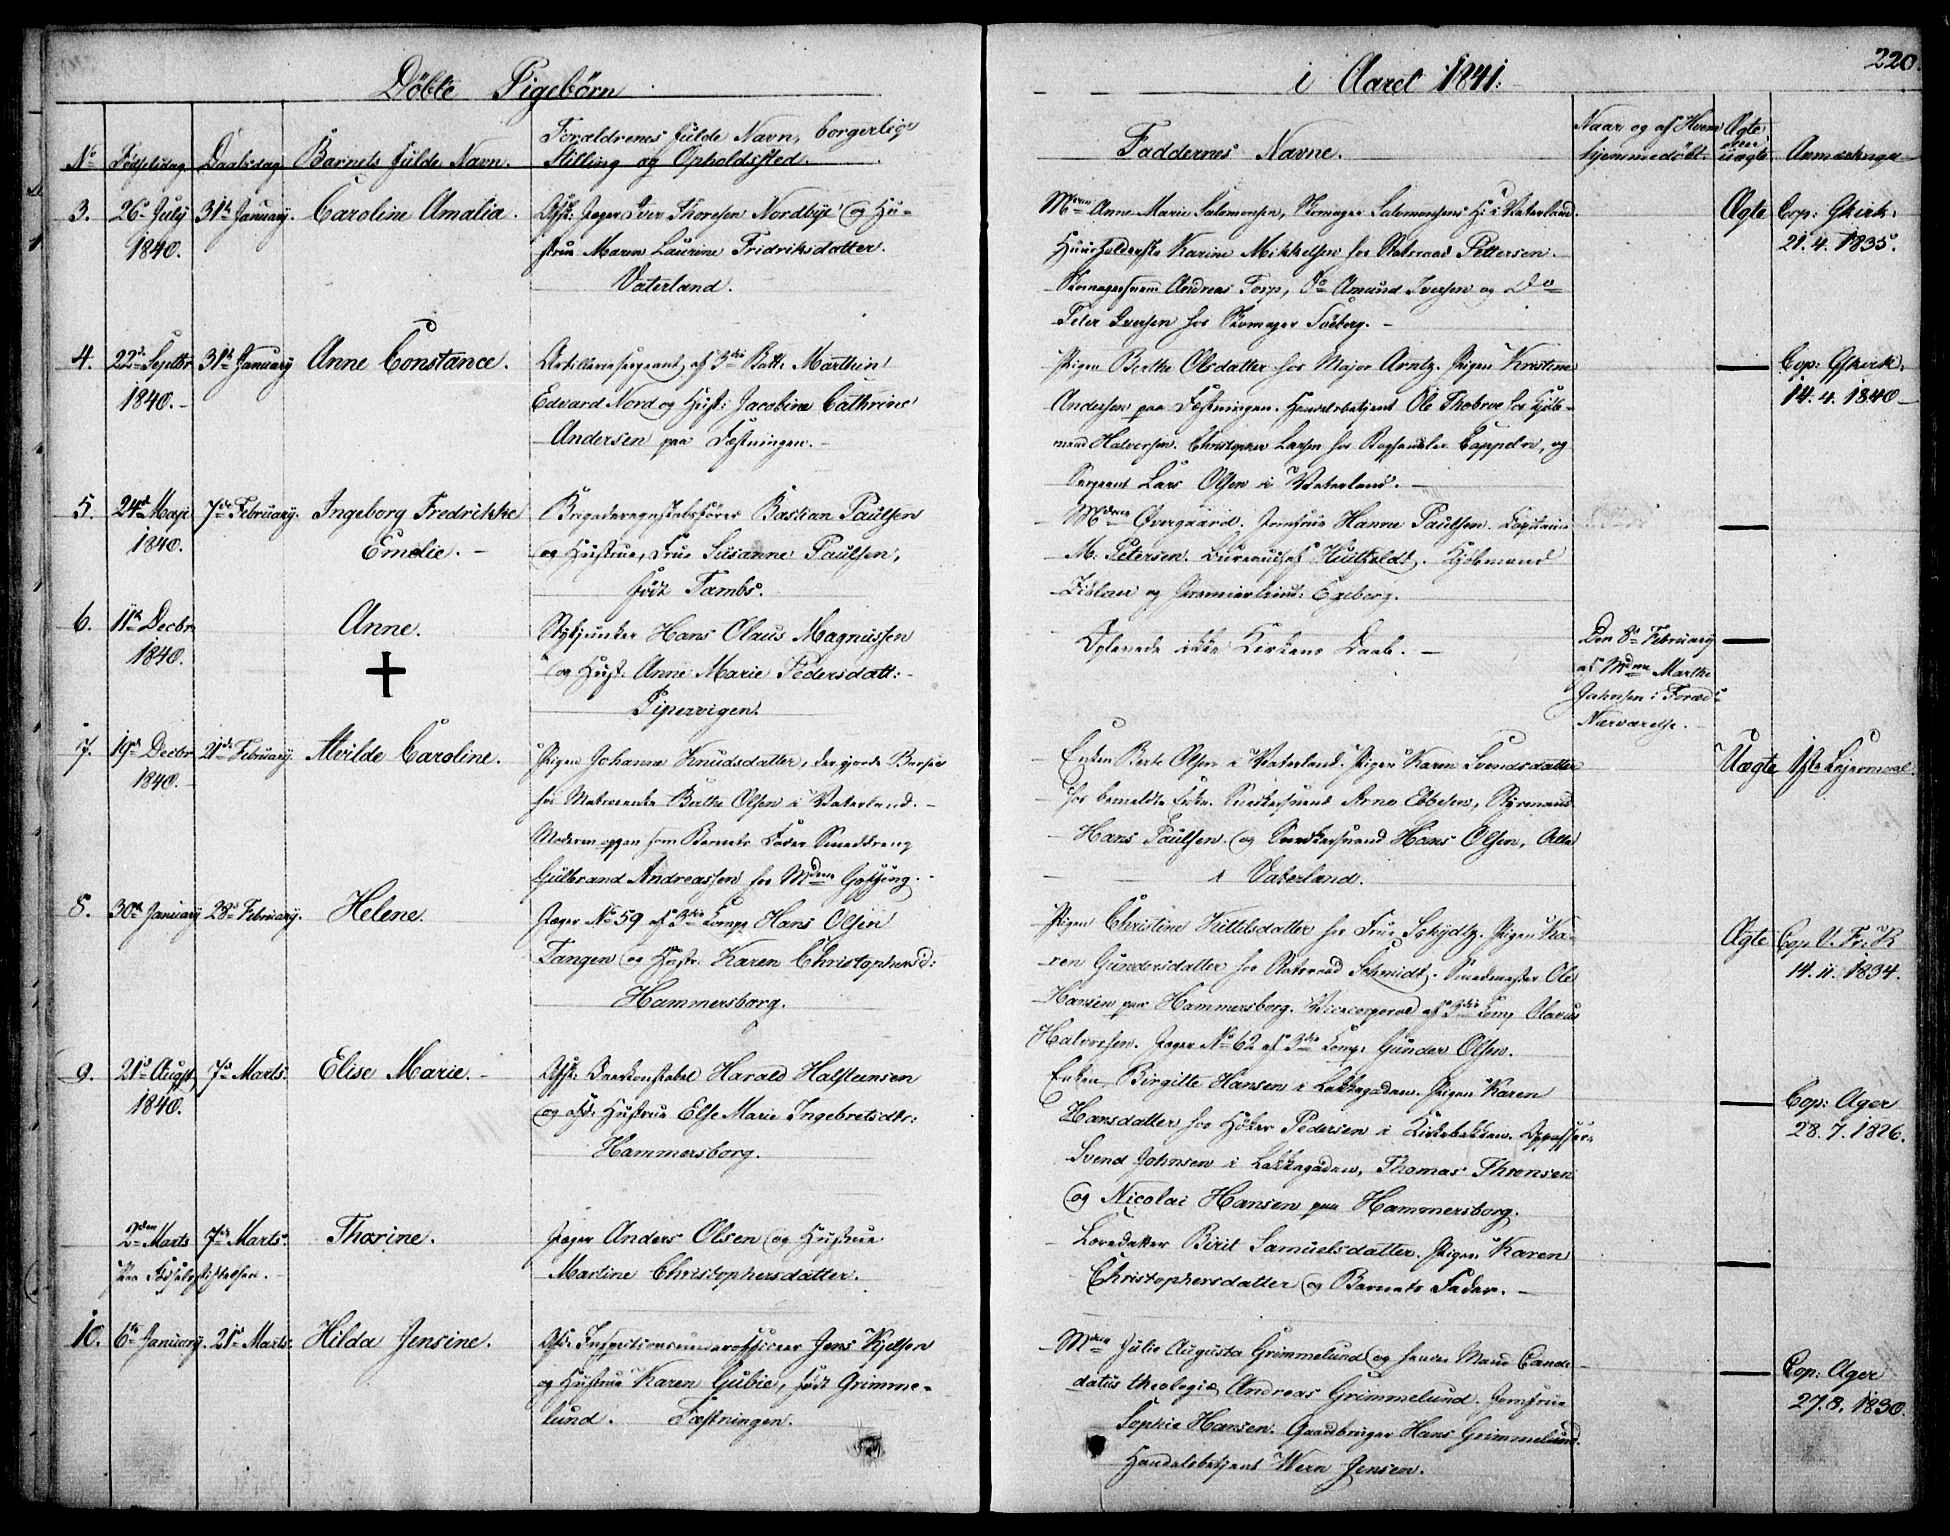 220.
Döbte Pigebörn i Aaret 1841.
No Födselsdag. Daabsdag. Barnets fulde Navn. Forældrenes fulde Navn, borgerlige Stilling og Opholdsted. Faddernes Navne. Naar og af Hvem hjemmedöbt. Ægte eller uægte Anmærkninger
3. 26de July 1840. 31te January. Caroline Amalia.
Afsk: Jæger Iver Thoresen Nordbye og Hu-
strue Maren Laurine Fridriksdatter.
Vaterland.
Mdme Anne Marie Salomonsen, Skomager Salomonsens H: i Vaterland.
Huusholderske Karine Mikkelsen hos Statsraad Pettersen.
Skomagersvend Andreas Torp, Do Amund Iversen og Do
Peter Iversen hos Skomager Töeberg.
Ægte Cop: Gkirk.
21. 4. 1835.
4. 22de Septbr 1840. 31te January Anne Constance.
Artilleriesergeant af 3die Batt: Marthin
Edvard Nord og Hust: Jacobine Cathrine
Andersen paa Fæstningen.
Pigen Berthe Olsdatter hos Major Arntz. Pigen Kirstine
Andersen paa Fæstningen. Handelsbetjent Ole Thobroe hos Kjöb-
mand Halvorsen. Christopher Larsen hos Boghandler Cappelen, og
Sergeant Lars Olsen i Vaterland.
Cop: Gskirk.
14. 4. 1840
5. 24de Maji 1840. 7de February. Ingeborg Fredrikke
Emelie.
Brigaderegnskabsförer Bastian Paulsen
og Hustrue, Frue Susanne Paulsen,
född Tambs.
Mdme Overgaard. Jomfrue Hanne Paulsen. Capitain
M. Petersen. Bureauchef Huitfeldt. Kjöbmand
og Premierlieut: Egeberg.
6. 11te Decbr 1840. Anne.
Stykjunker Hans Olaus Magnussen
og Hust: Anne Marie Pedersdatt:
Pipervigen.
Oplevede ikke Kirkens Daab.
Den 8de February
af Mdme Marthe
Jahnsen i Foræld:
Nærværelse.
7. 19de Decbr 1840. 21de February. Alvilde Caroline.
Pigen Johanne Knudsdatter, der gjorde Barsel
hos Matros enke Berthe Olsen i Vaterland.
Moderen opgav som Barnets Fader Smeddreng
Gulbrand Andreassen hos Mdme
Enken Berte Olsen i Vaterland. Pigen Karen Svendsdatter
hos bemeldte Enke. Snedkersvend Arne Ebbesen, Styrmand
Hans Paulsen og Snedkersvend Hans Olsen, Alle
i Vaterland.
Uægte 1ste Leiermaal.
8. 30te January 28de February. Helene.
Jæger No 59 af 3die Comp: Hans Olsen
Tangen og Hustr: Karen Christophersd:
Hammersborg.
Pigen Christine Kittelsdatter hos Frue Schydtz. Pigen Ka-
ren Gundersdatter hos Statsraad Schmidt. Smedmester Ole
Hansen paa Hammersborg. Vicecorporal af 3die Comp: Olavus
Halvorsen. Jæger No 62 af 3die Comp: Gunder Olsen.
Ægte Cop. V. Fr: K
14. 11. 1834.
9. 21de August 1840. 7de Marts. Elise Marie.
Afsk: Harald Halsteinsen
og afsk: Hustrue Else Marie Ingebretsdtr:
Hammersborg.
Enken Birgitte Hansen i Lakkegaden. Pigen Karen
Hansdatter hos Höker Pedersen i Kirkebakken. Oppasser
Svend Johnsen i Lakkegaden, Thomas Thronsen
og Nicolai Hansen paa Hammersborg.
Cop: Ager
28. 7. 1826.
2den Marts 7de Marts. Thorine.
Paa Födselsstiftelsen.
Jæger Anders Olsen og Hustrue
Martine Christophersdatter.
Læredatter Birit Samuelsdatter. Pigen Karen
Christophersdatter og Barnets Fader.
10. 6te January. 21de Marts. Hilda Jensine.
Afsk: Infanteriunderofficeer Jens Kjelsen
og Hustrue Karen Gubie, född Grimme-
lund. Fæstningen.
Mdme Julie Augusta Grimmelund og hendes Mand Candi-
datus theologiæ Andreas Grimmelund. Jomfrue
Sophie Hansen. Gaardbruger Hans Grimmelund.
Handelsbetjent Wern Jensen.
Cop: Ager
27. 8. 1830.